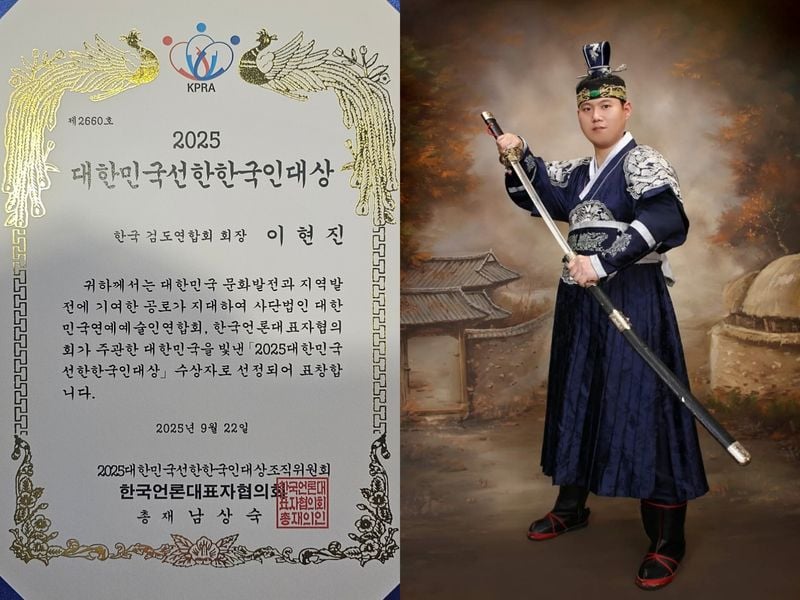 KPRA
제2660호
2025
대한민국선한한국인대상
한국 검도연합회 회장 이 현 진
귀하께서는 대한민국 문화발전과 지역발
전에 기여한 공로가 지대하여 사단법인 대한
민국연예예술인연합회, 한국언론대표자협의
회가 주관한 대한민국을 빛낸 「2025대한민국
선한한국인대상」 수상자로 선정되어 표창합
니다.
2025년 9월 22일
2025대한민국선한한국인대상조직위원회
한국언론대표자협의회
총 재 남 상 숙
한국언론대
표자협의회
총재의인